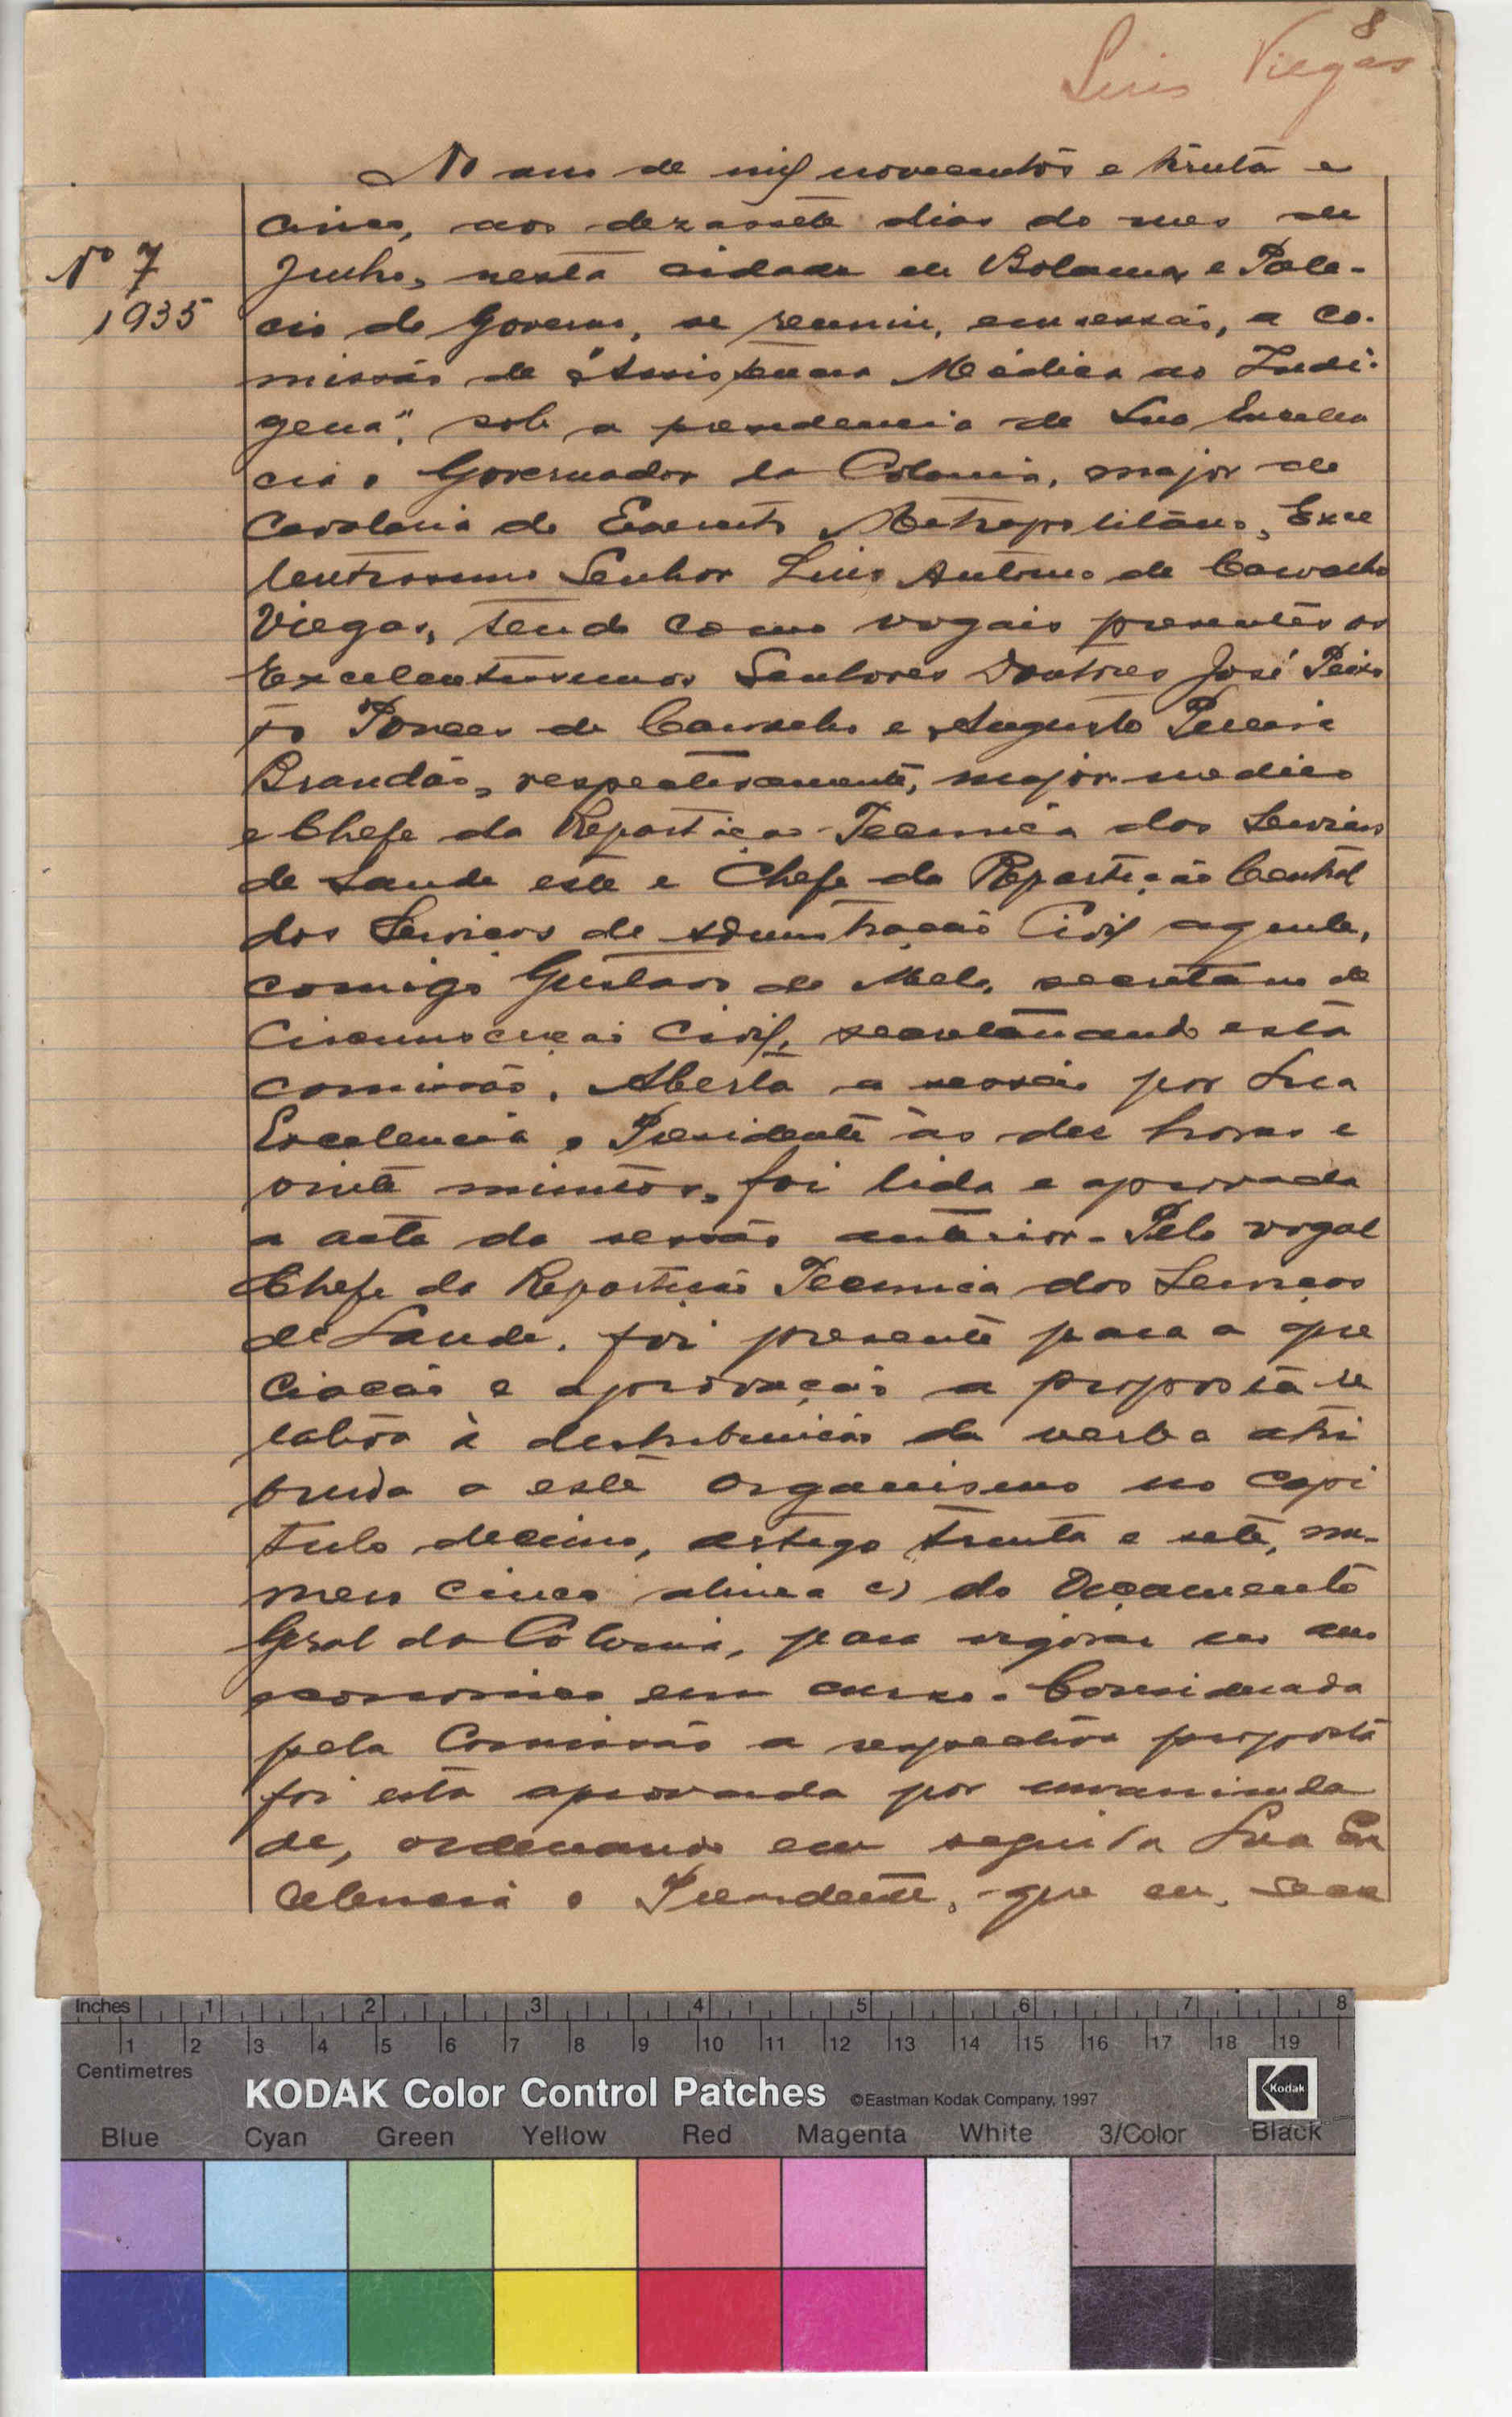 8
Luis Viegas
No ano de mil novecentos e trinta e
cinco, aos dezassete dias do mes de
Nº 7
1935
Junho, nesta cidade de Bolama e Pala-
cio do Governo, se reuniu, em sessão, a co-
missão de "Assistencia Médica ao Indi-
gena", sob a presidencia de Sua Excelen
cia o Governador da Colonia, major de
Cavalaria do Exercito Metropolitano, Exce
lentissimo Senhor Luis Antonio de Carvalho
Viegas, tendo como vogais presentes os
Excelentissimos Senhores Doutores José Peixo
to Ponces de Carvalho e Augusto Pereira
Brandão, respectivamente, major medico
e Chefe da Repartição Tecnica dos Serviços
de Saude este e Chefe da Repartição Central
dos Serviços de Admnstração Civil aquele,
comigo Gustavo de Melo, secretário de
Circunscrição Civil, secretariando esta
comissão. Aberta a sessão por Sua
Excelencia o Presidente às dez horas e
vinte minutos, foi lida e aprovada
a acta da sessão anterior. Pelo vogal
Chefe da Repartição Tecnica dos Serviços
de Saude, foi presente para a apre
ciação e aprovação a proposta re
lativa à destribuição da verba atri
buida a este organismo no capi
tulo decimo, artigo trinta e sete, nu-
mero cinco alinea c) do Orçamento
Geral da Colonia, para vigorar no ano
economico em curso. Considerada
pela Comissão a respectiva proposta
foi esta aprovada por unanimida
de, ordenando em seguida Sua Ex
celencia o Presidente, que eu, secre
Inches 1 2 3 4 5 6 7 8
1 2 3 4 5 6 7 8 9 10 11 12 13 14 15 16 17 18 19
Centimetres
KODAK Color Control Patches ©Eastman Kodak Company, 1997
Kodak
Blue Cyan Green Yellow Red Magenta White 3/Color Black